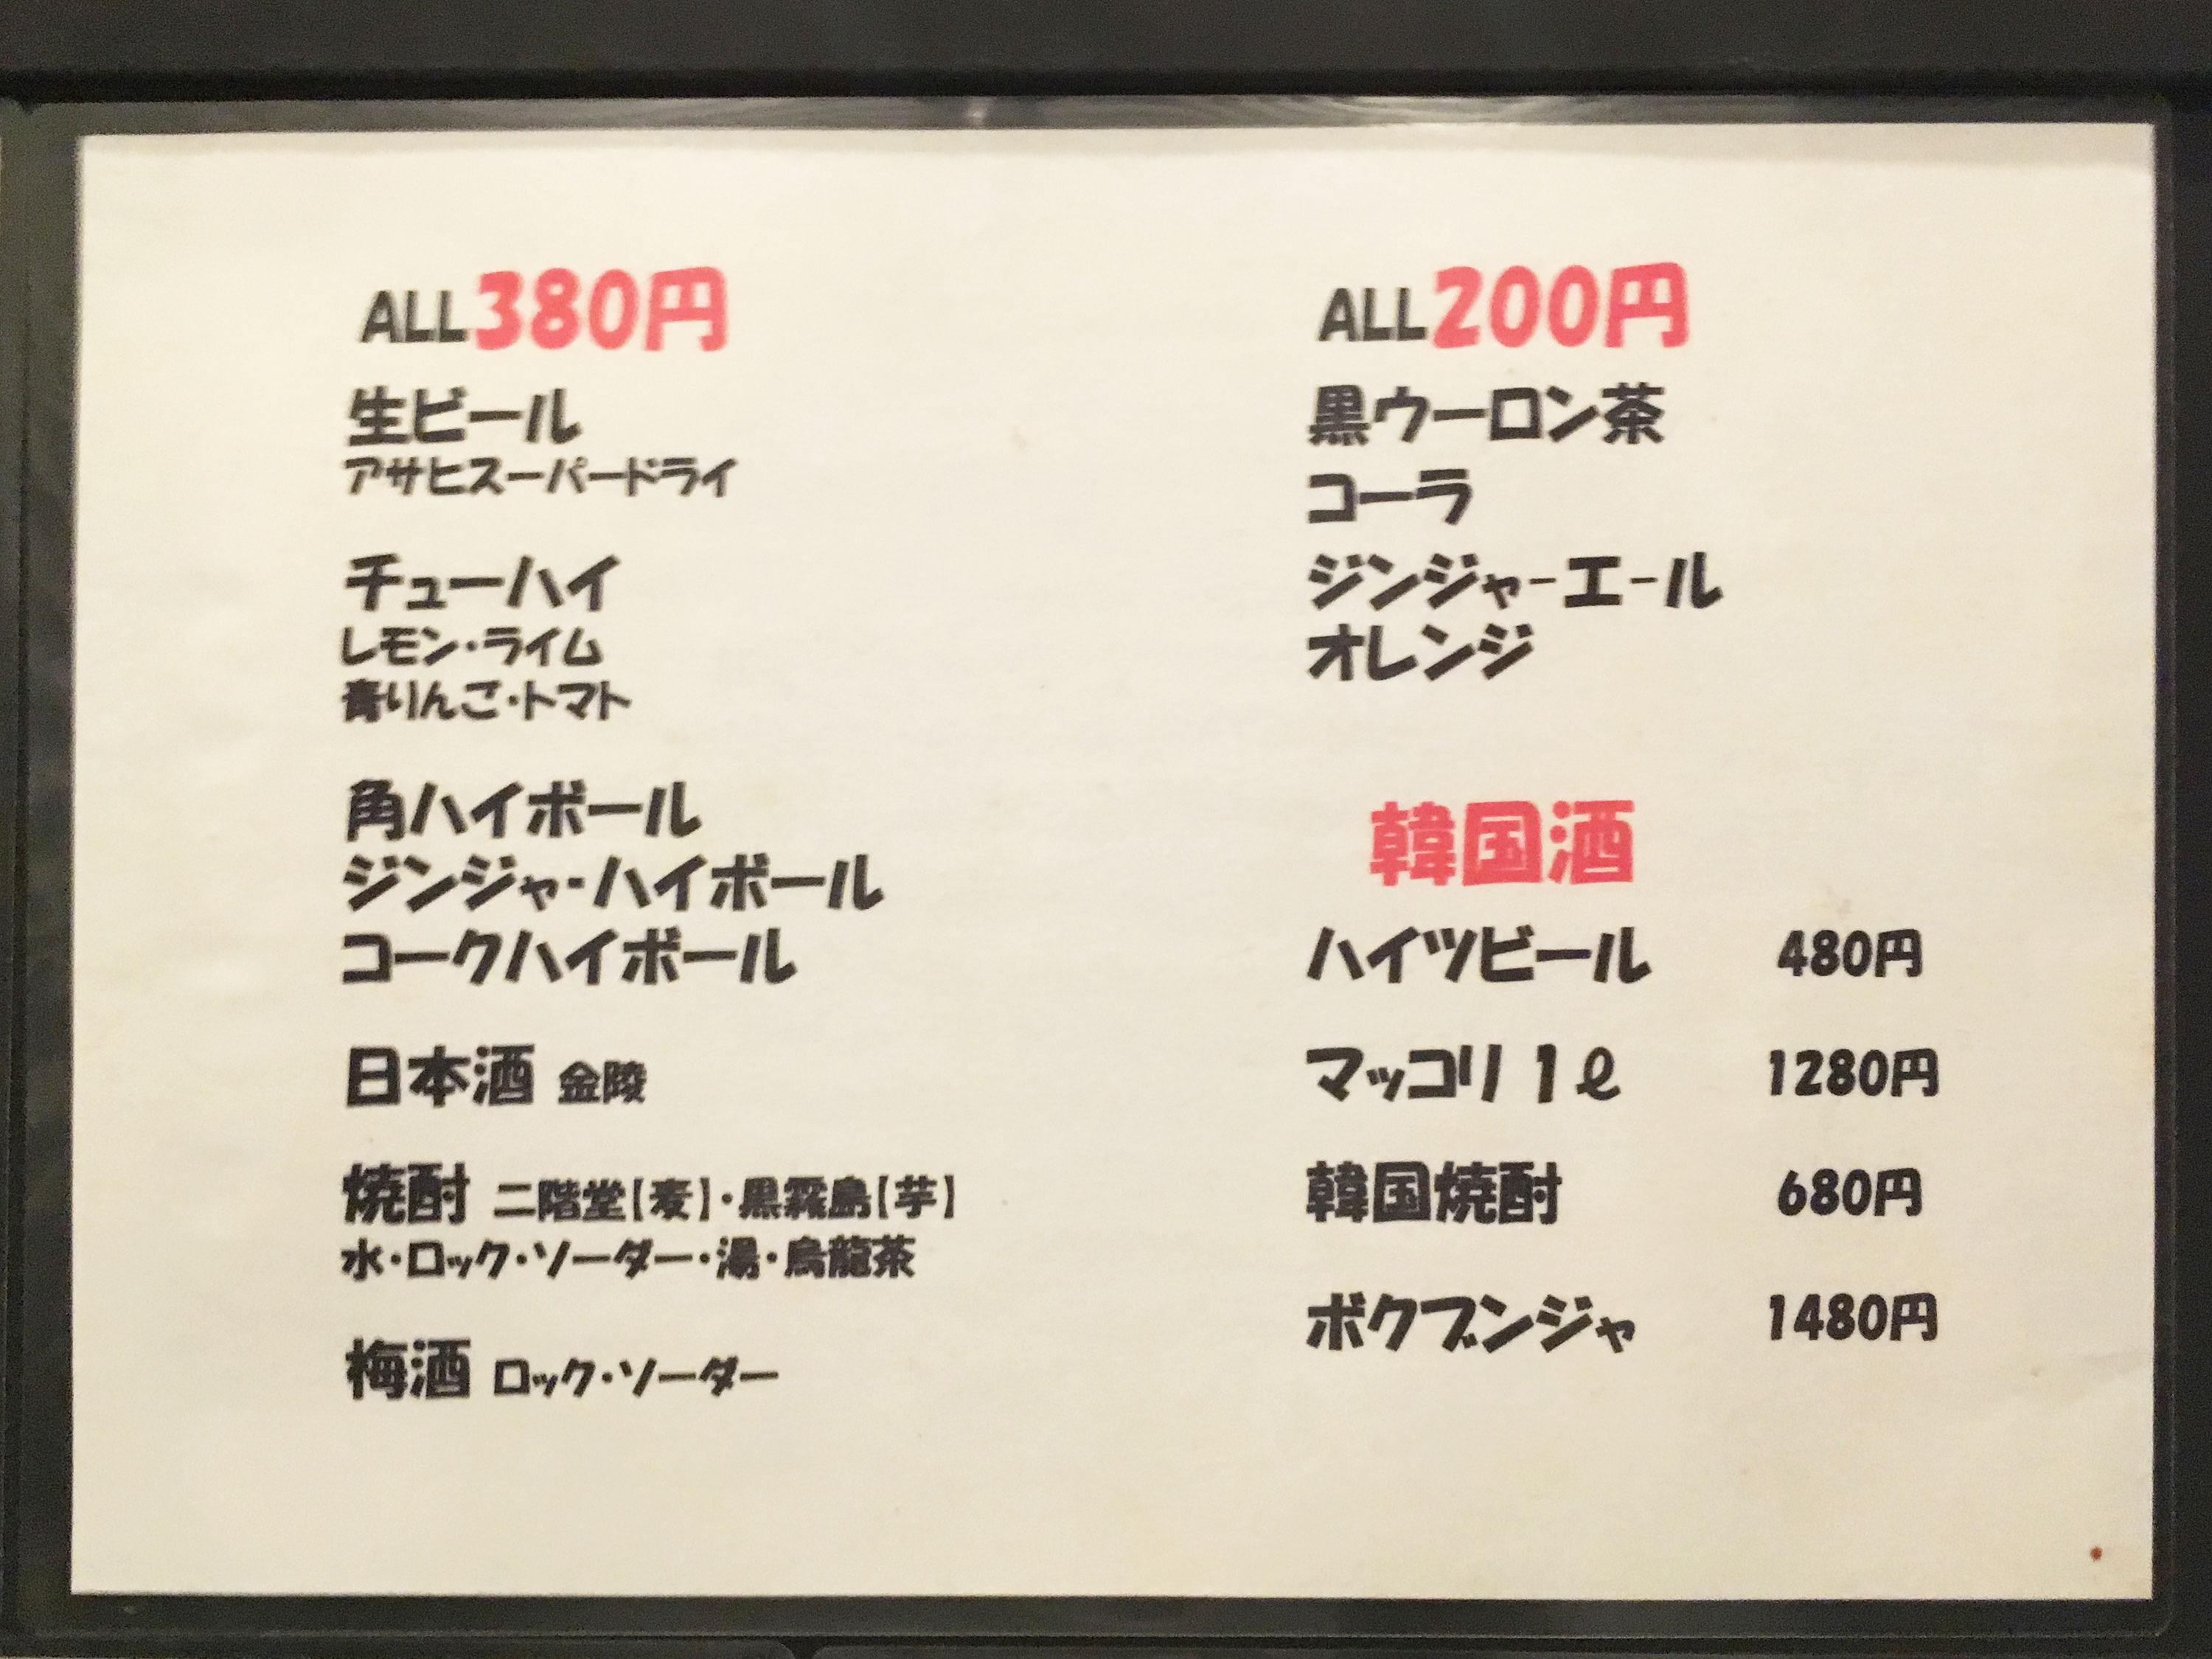 ALL380円
生ビール
アサヒスーパードライ
チューハイ
レモン・ライム
青りんご・トマト
角ハイボール
ジンジャーハイボール
コークハイボール
日本酒 金陵
焼酎 二階堂【麦】・黒霧島【芋】
水・ロック・ソーダー・湯・烏龍茶
梅酒 ロック・ソーダー
ALL200円
黒ウーロン茶
コーラ
ジンジャーエール
オレンジ
韓国酒
ハイツビール 480円
マッコリ 1ℓ 1280円
韓国焼酎 680円
ボクブンジャ 1480円